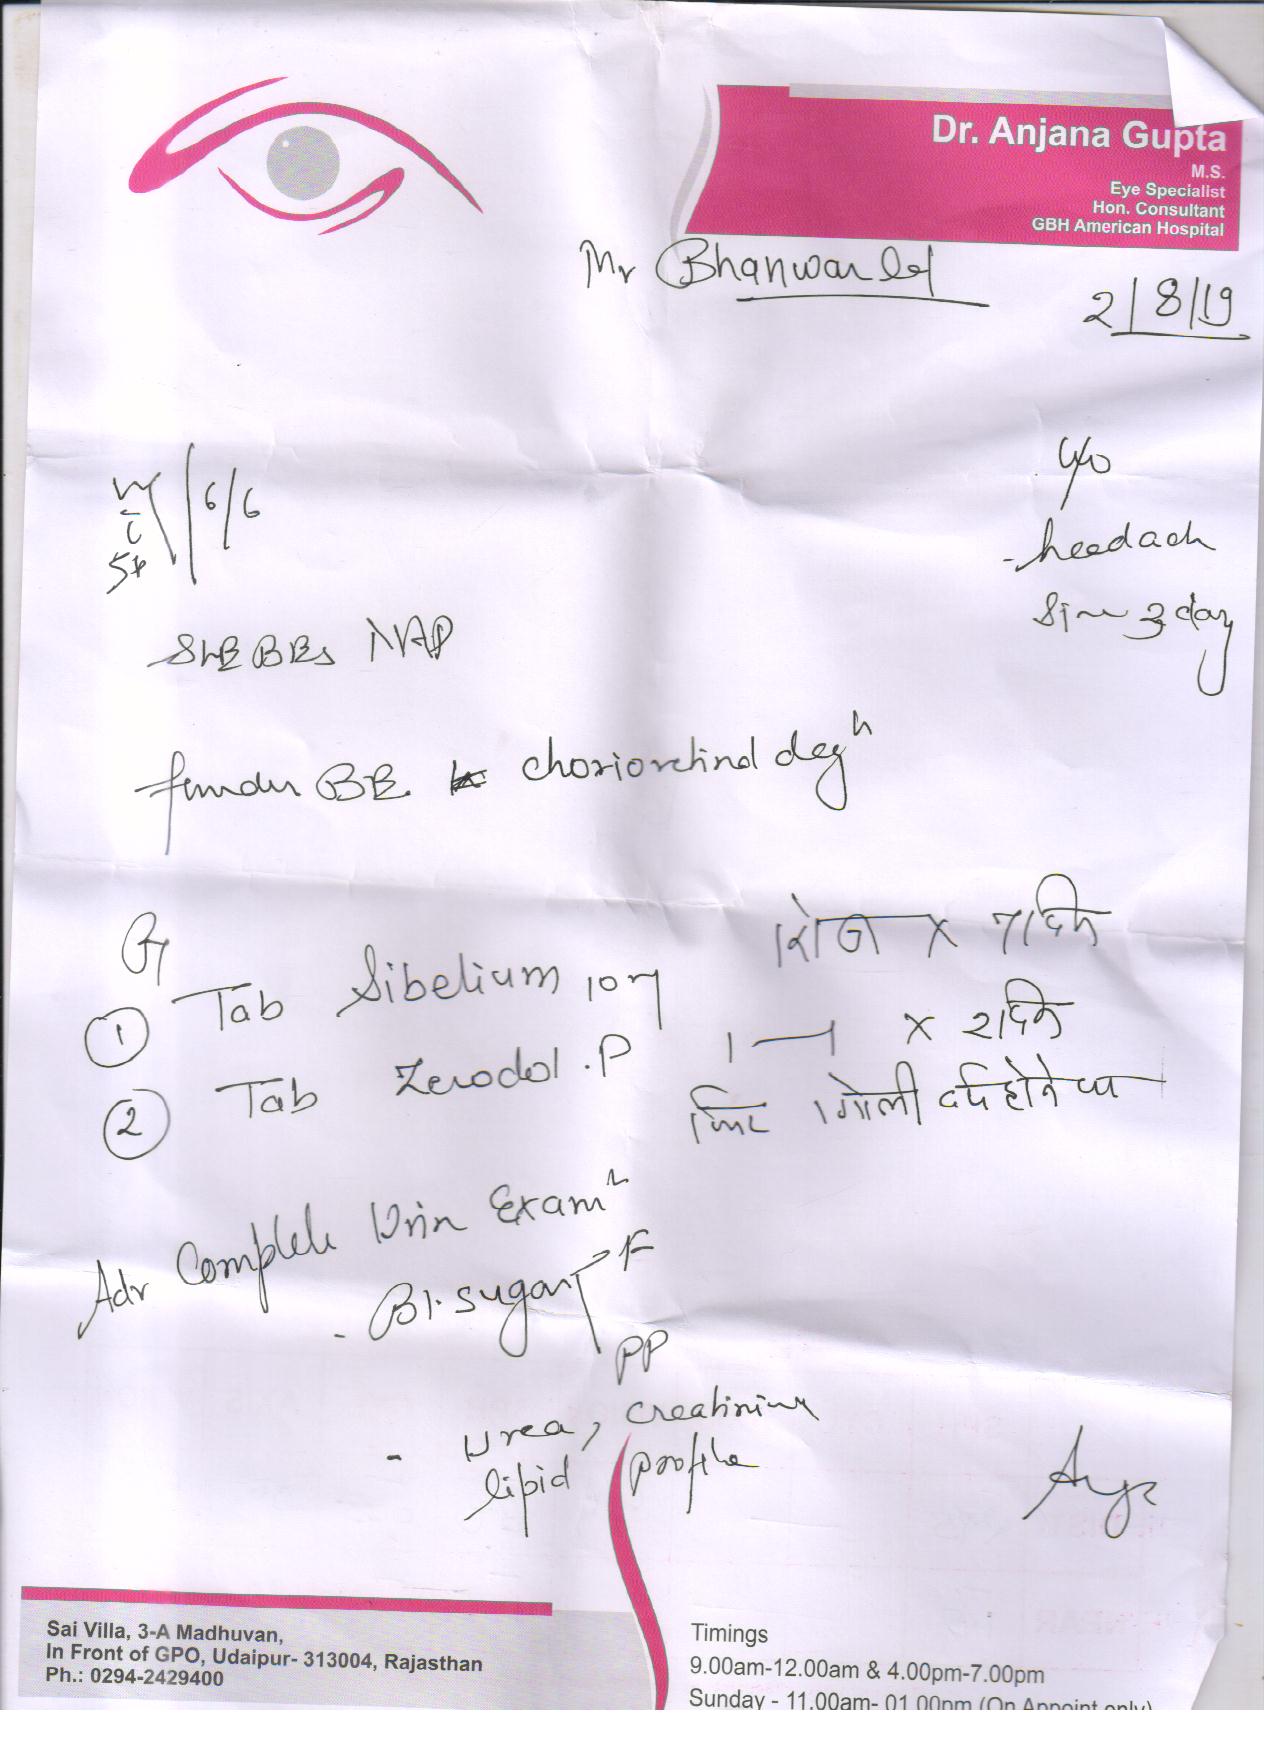 Dr. Anjana Gupta
M.S.
Eye Specialist
Hon. Consultant
GBH American Hospital
Mr Bhanwar lal
2/8/19
c/o
- headach
Sin 3 day
6/6
SLE BEs NAD
fundus BE chorioretinal degn
① Tab Sibelium 10 mg रोज x 7 दिन
② Tab Zerodol.P 1 — 1 x 2 दिन
फिर 1 गोली दर्द होने पर
Adv Complete Urin Examn
- Bl. sugar F
PP
- Urea, creatinine
lipid profile
Sai Villa, 3-A Madhuvan,
In Front of GPO, Udaipur- 313004, Rajasthan
Ph.: 0294-2429400
Timings
9.00am-12.00am & 4.00pm-7.00pm
Sunday - 11.00am- 01.00pm (On Appoint only)